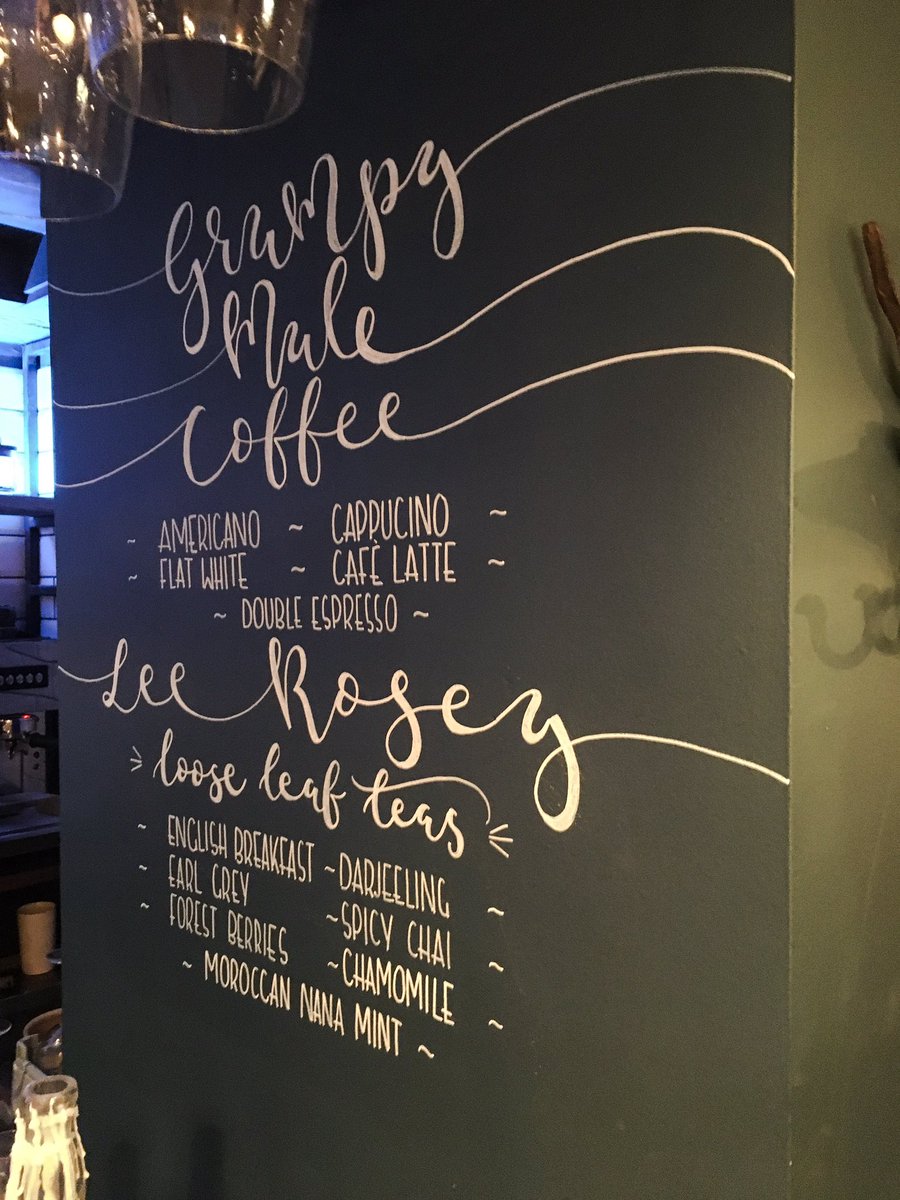 Grumpy
Mule
Coffee
~ AMERICANO ~ CAPPUCINO ~
~ FLAT WHITE ~ CAFÈ LATTE ~
~ DOUBLE ESPRESSO ~
Lee Rosey
loose leaf teas
~ ENGLISH BREAKFAST ~ DARJEELING ~
~ EARL GREY ~ SPICY CHAI ~
~ FOREST BERRIES ~ CHAMOMILE ~
~ MOROCCAN NANA MINT ~